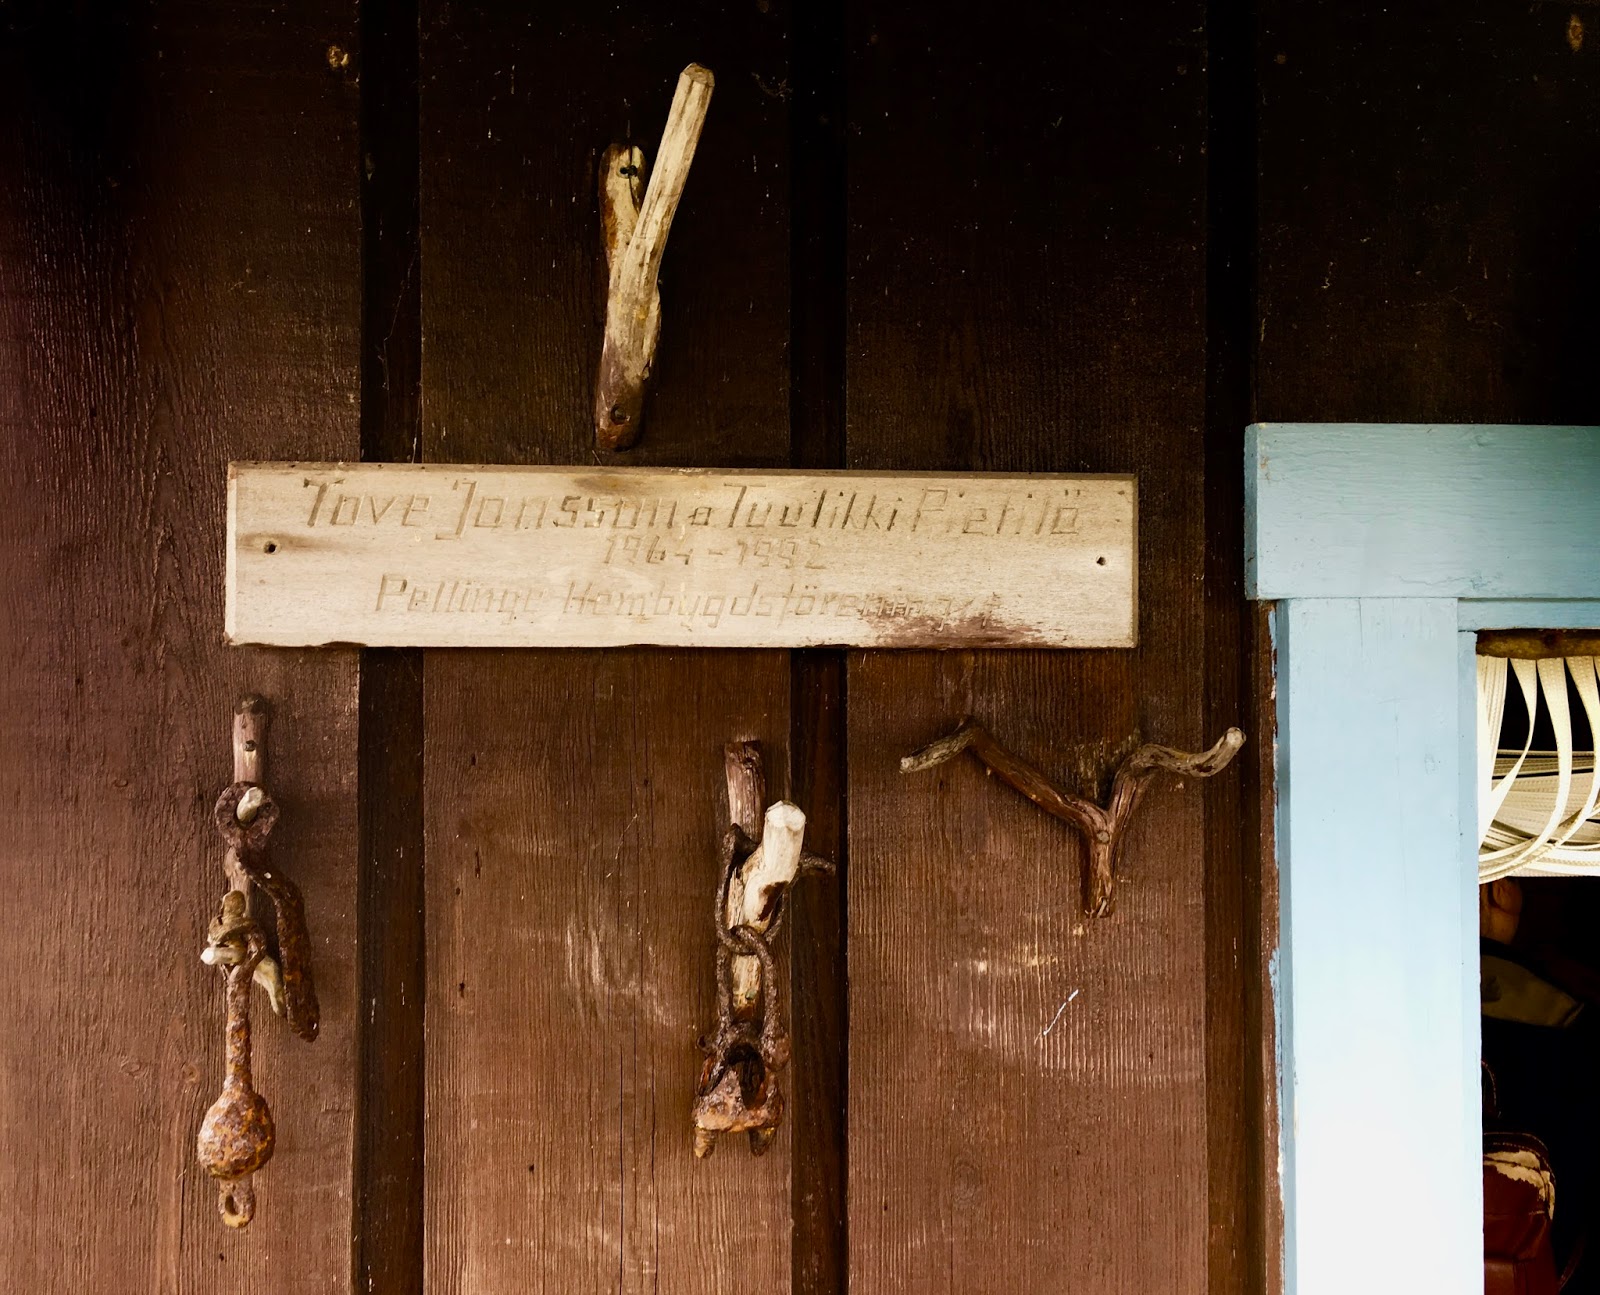 Tove Jonsson a Tuulikki Pietilä
1964-1992
Pellinge Hembygdsförening r.f.